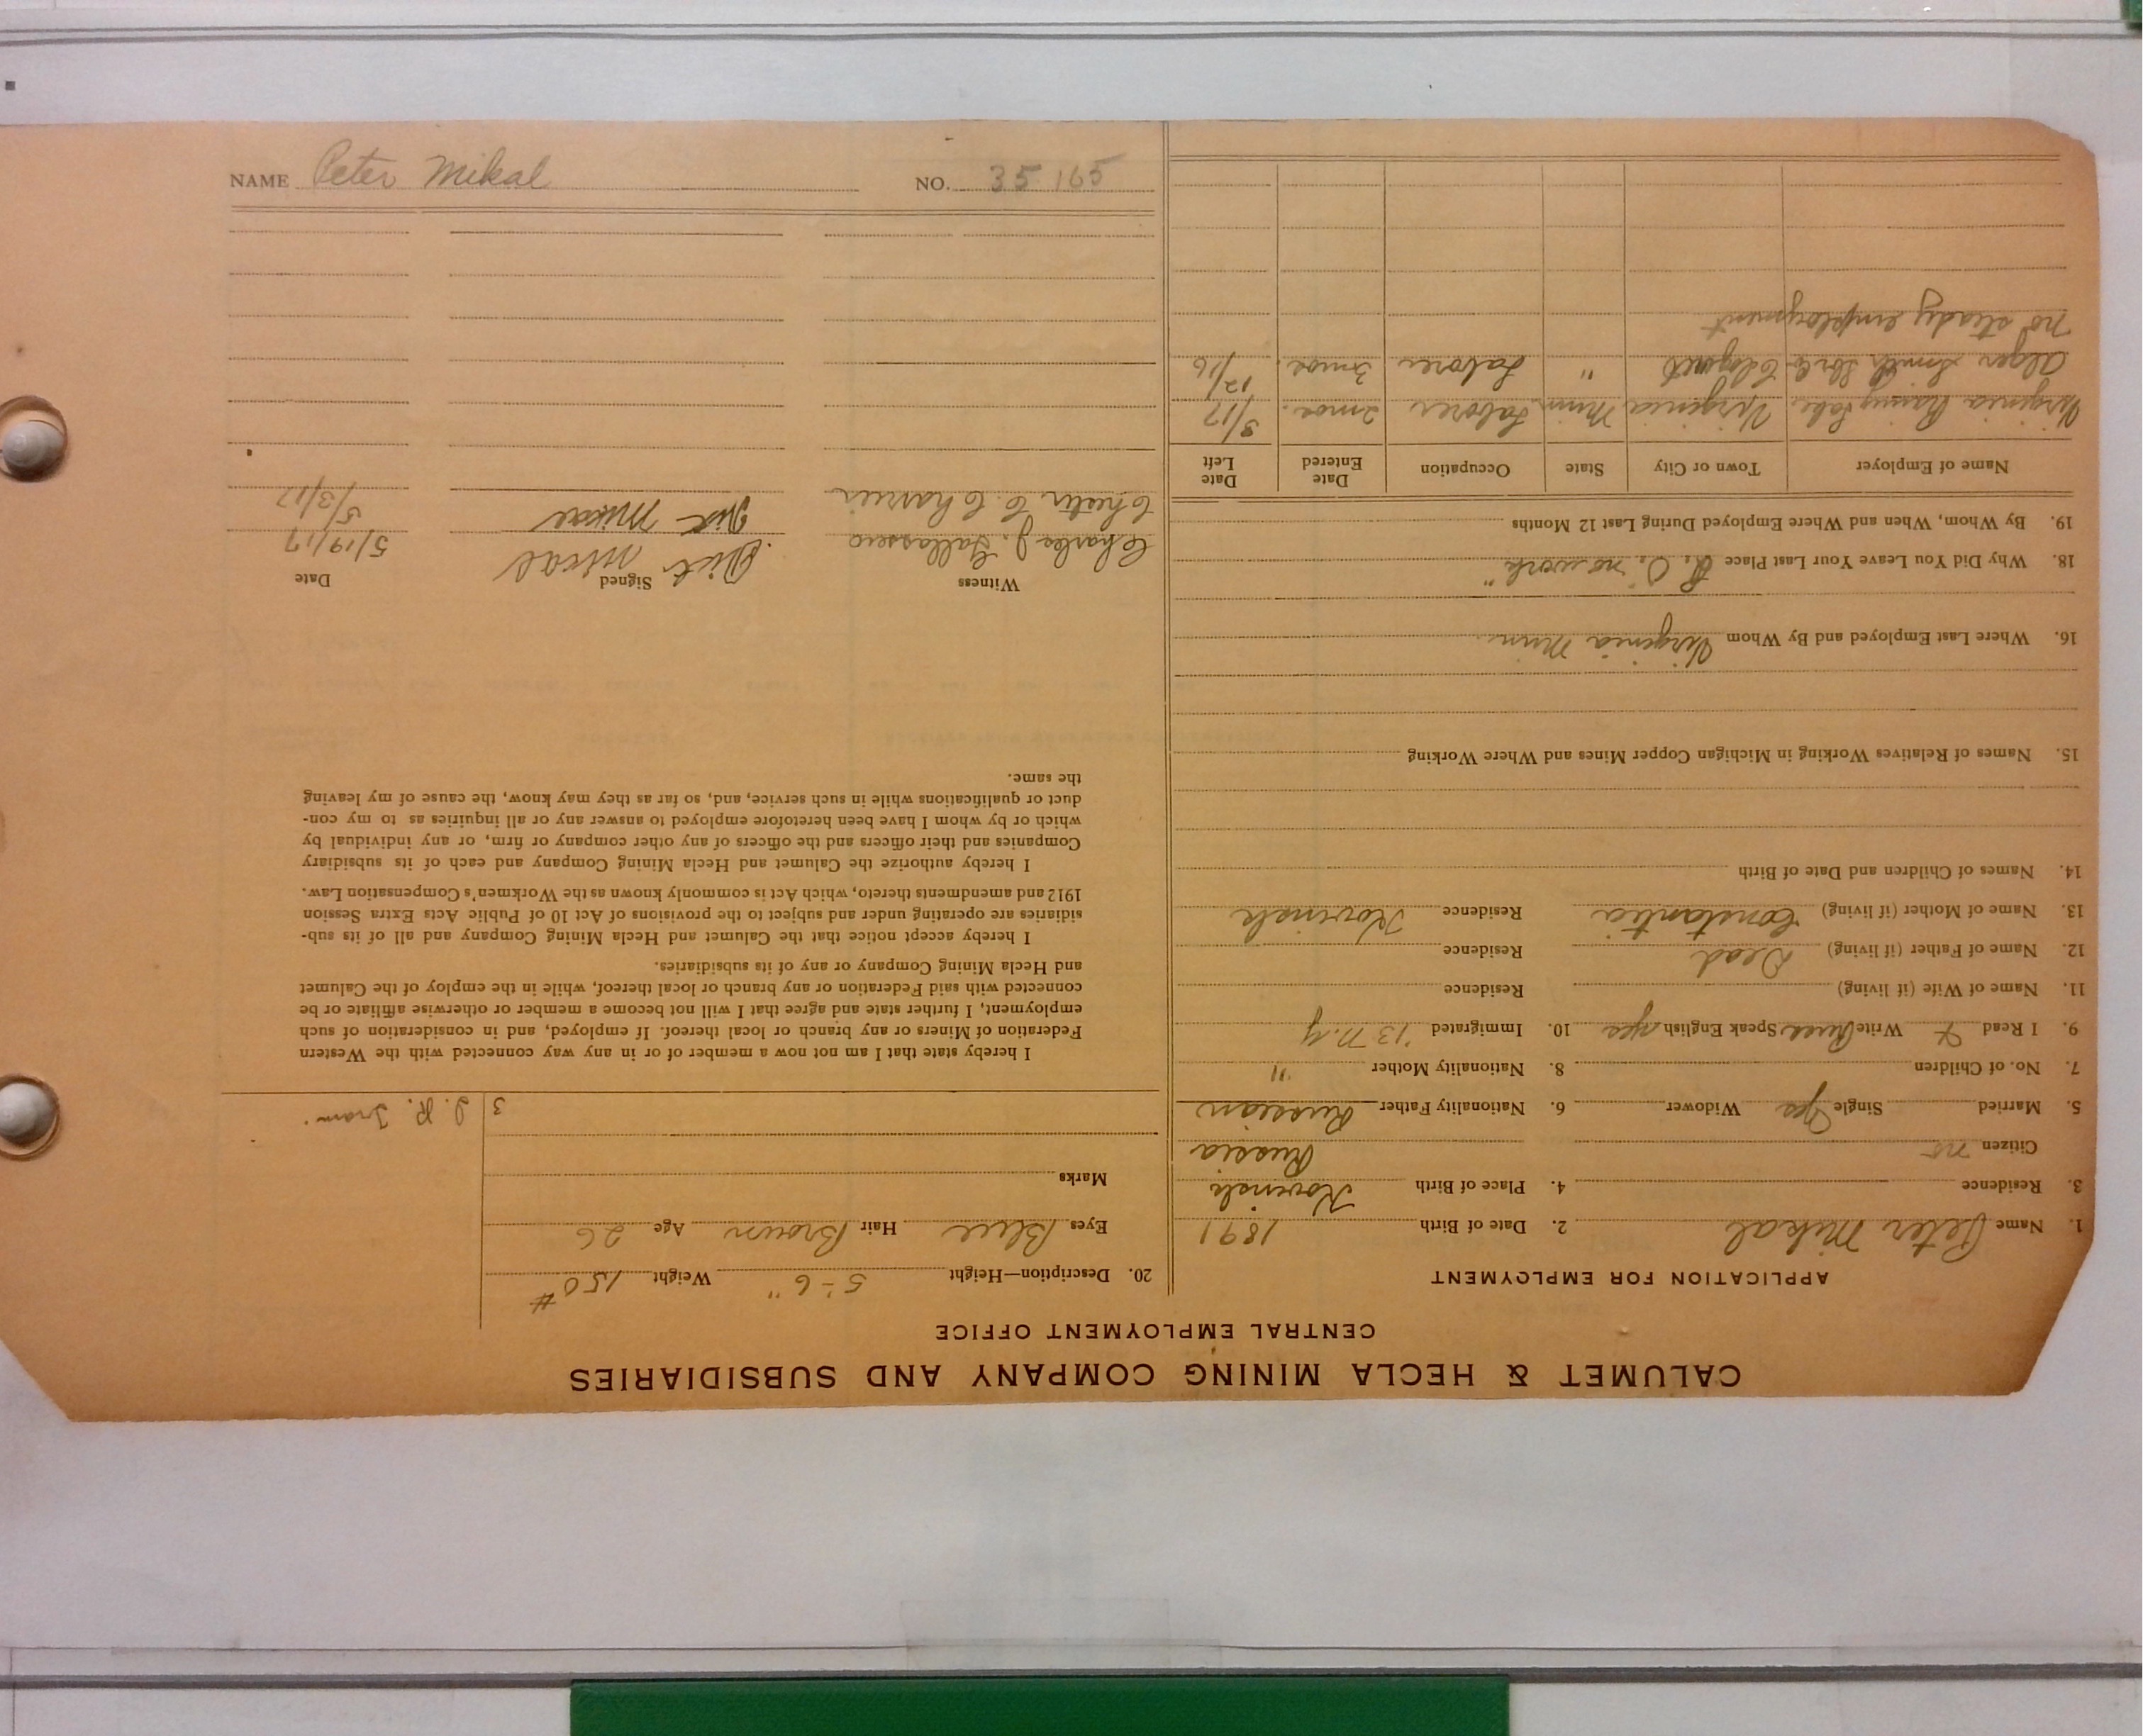 CALUMET & HECLA MINING COMPANY AND SUBSIDIARIES
CENTRAL EMPLOYMENT OFFICE
APPLICATION FOR EMPLOYMENT
1. Name Peter Mikal 2. Date of Birth 1891
3. Residence 4. Place of Birth Kovinsk
Citizen no Russia
5. Married Single Yes Widower 6. Nationality Father Russian
7. No. of Children 8. Nationality Mother "
9. I Read Write Speak English yes 10. Immigrated '13 N.Y
11. Name of Wife (if living) Residence
12. Name of Father (if living) Dead Residence
13. Name of Mother (if living) Constantia Residence Kovinsk
14. Names of Children and Date of Birth
15. Names of Relatives Working in Michigan Copper Mines and Where Working
16. Where Last Employed and By Whom Virginia Minn.
18. Why Did You Leave Your Last Place "no work"
19. By Whom, When and Where Employed During Last 12 Months
Name of Employer Town or City State Occupation Date Entered Date Left
Virginia Rainy Lake Virginia Minn Laborer 2 mos. 3/17
Alger Smith " Laborer 3 mos. 12/16
no steady employment
20. Description—Height 5-6" Weight 150#
Eyes Blue Hair Brown Age 26
Marks
3 Tram.
I hereby state that I am not now a member of or in any way connected with the Western
Federation of Miners or any branch or local thereof. If employed, and in consideration of such
employment, I further state and agree that I will not become a member or otherwise affiliate or be
connected with said Federation or any branch or local thereof, while in the employ of the Calumet
and Hecla Mining Company or any of its subsidiaries.
I hereby accept notice that the Calumet and Hecla Mining Company and all of its sub-
sidiaries are operating under and subject to the provisions of Act 10 of Public Acts Extra Session
1912 and amendments thereto, which Act is commonly known as the Workmen's Compensation Law.
I hereby authorize the Calumet and Hecla Mining Company and each of its subsidiary
Companies and their officers and the officers of any other company or firm, or any individual by
which or by whom I have been heretofore employed to answer any or all inquiries as to my con-
duct or qualifications while in such service, and, so far as they may know, the cause of my leaving
the same.
Witness Signed Date
Charles J. 5/19/17
Chester C. 5/3/17
NAME Peter Mikal NO. 35165